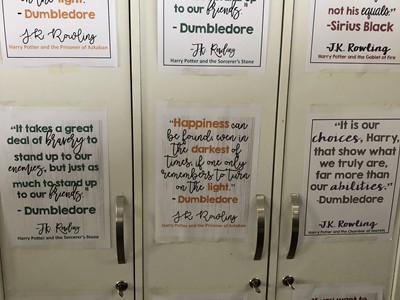 in the light."
- Dumbledore
J.K. Rowling
Harry Potter and the Prisoner of Azkaban
to our friends."
- Dumbledore
J.K. Rowling
Harry Potter and the Sorcerer's Stone
not his equals."
-Sirius Black
-J.K. Rowling
Harry Potter and the Goblet of Fire
"It takes a great
deal of bravery to
stand up to our
enemies, but just as
much to stand up
to our friends."
- Dumbledore
J.K. Rowling
Harry Potter and the Sorcerer's Stone
"Happiness can
be found, even in
the darkest of
times, if one only
remembers to turn
on the light."
- Dumbledore
J.K. Rowling
Harry Potter and the Prisoner of Azkaban
"It is our
choices, Harry,
that show what
we truly are,
far more than
our abilities."
-Dumbledore
-J.K. Rowling
Harry Potter and the Chamber of Secrets
you want to